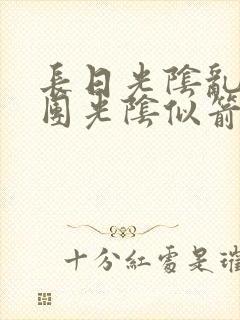 長日光陰亂
園光陰似箭
十分紅處是璀